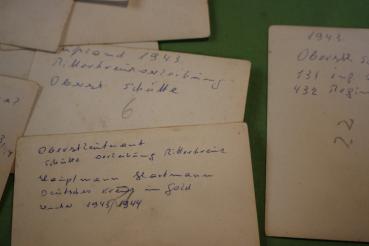 1943
Ritterkreuzverleihung
Oberst Schütte
6
Oberstleutnant
Schütte Verleihung Ritterkreuz
Hauptmann
Deutsches Kreuz in Gold
Winter 1943/1944
1943.
Oberst
131 ing
432 Regim
22